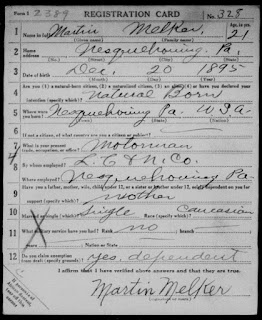 Form 1 2389 REGISTRATION CARD No. 328
1 Name in full Martin Melker Age, in yrs. 21
(Given name) (Family name)
2 Home address Nesquehoning Pa.
(No.) (Street) (City) (State)
3 Date of birth Dec. 20 1895
(Month) (Day) (Year)
4 Are you (1) a natural-born citizen, (2) a naturalized citizen, (3) an alien, (4) or have you declared your
intention (specify which)? Natural Born
5 Where were you born? Nesquehoning Pa. USA
(Town) (State) (Nation)
6 If not a citizen, of what country are you a citizen or subject?
7 What is your present trade, occupation, or office? Motorman
8 By whom employed? L.C. & N. Co.
Where employed? Nesquehoning Pa
9 Have you a father, mother, wife, child under 12, or a sister or brother under 12, solely dependent on you for
support (specify which)? Mother
10 Married or single (which)? Single Race (specify which)? Caucasian
11 What military service have you had? Rank no Branch
years Nation or State
12 Do you claim exemption from draft (specify grounds)? yes, dependent
I affirm that I have verified above answers and that they are true.
Martin Melker